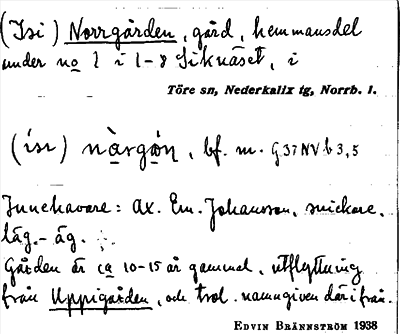 (Isi) Norrgården, gård, hemmansdel
under no 1 i 1-8 Siknäset, i
Töre sn, Nederkalix tg, Norrb. l.
(isi) nà̱rgɷ̱n, bf. m. G37NV b 3,5
Innehavare: Ax. Em. Johansson, snickare,
läg.-äg.
Gården är ca 10-15 år gammal, utflyttning
från Uppigården, och trol. namngiven därifrån.
EDVIN BRÄNNSTRÖM 1938